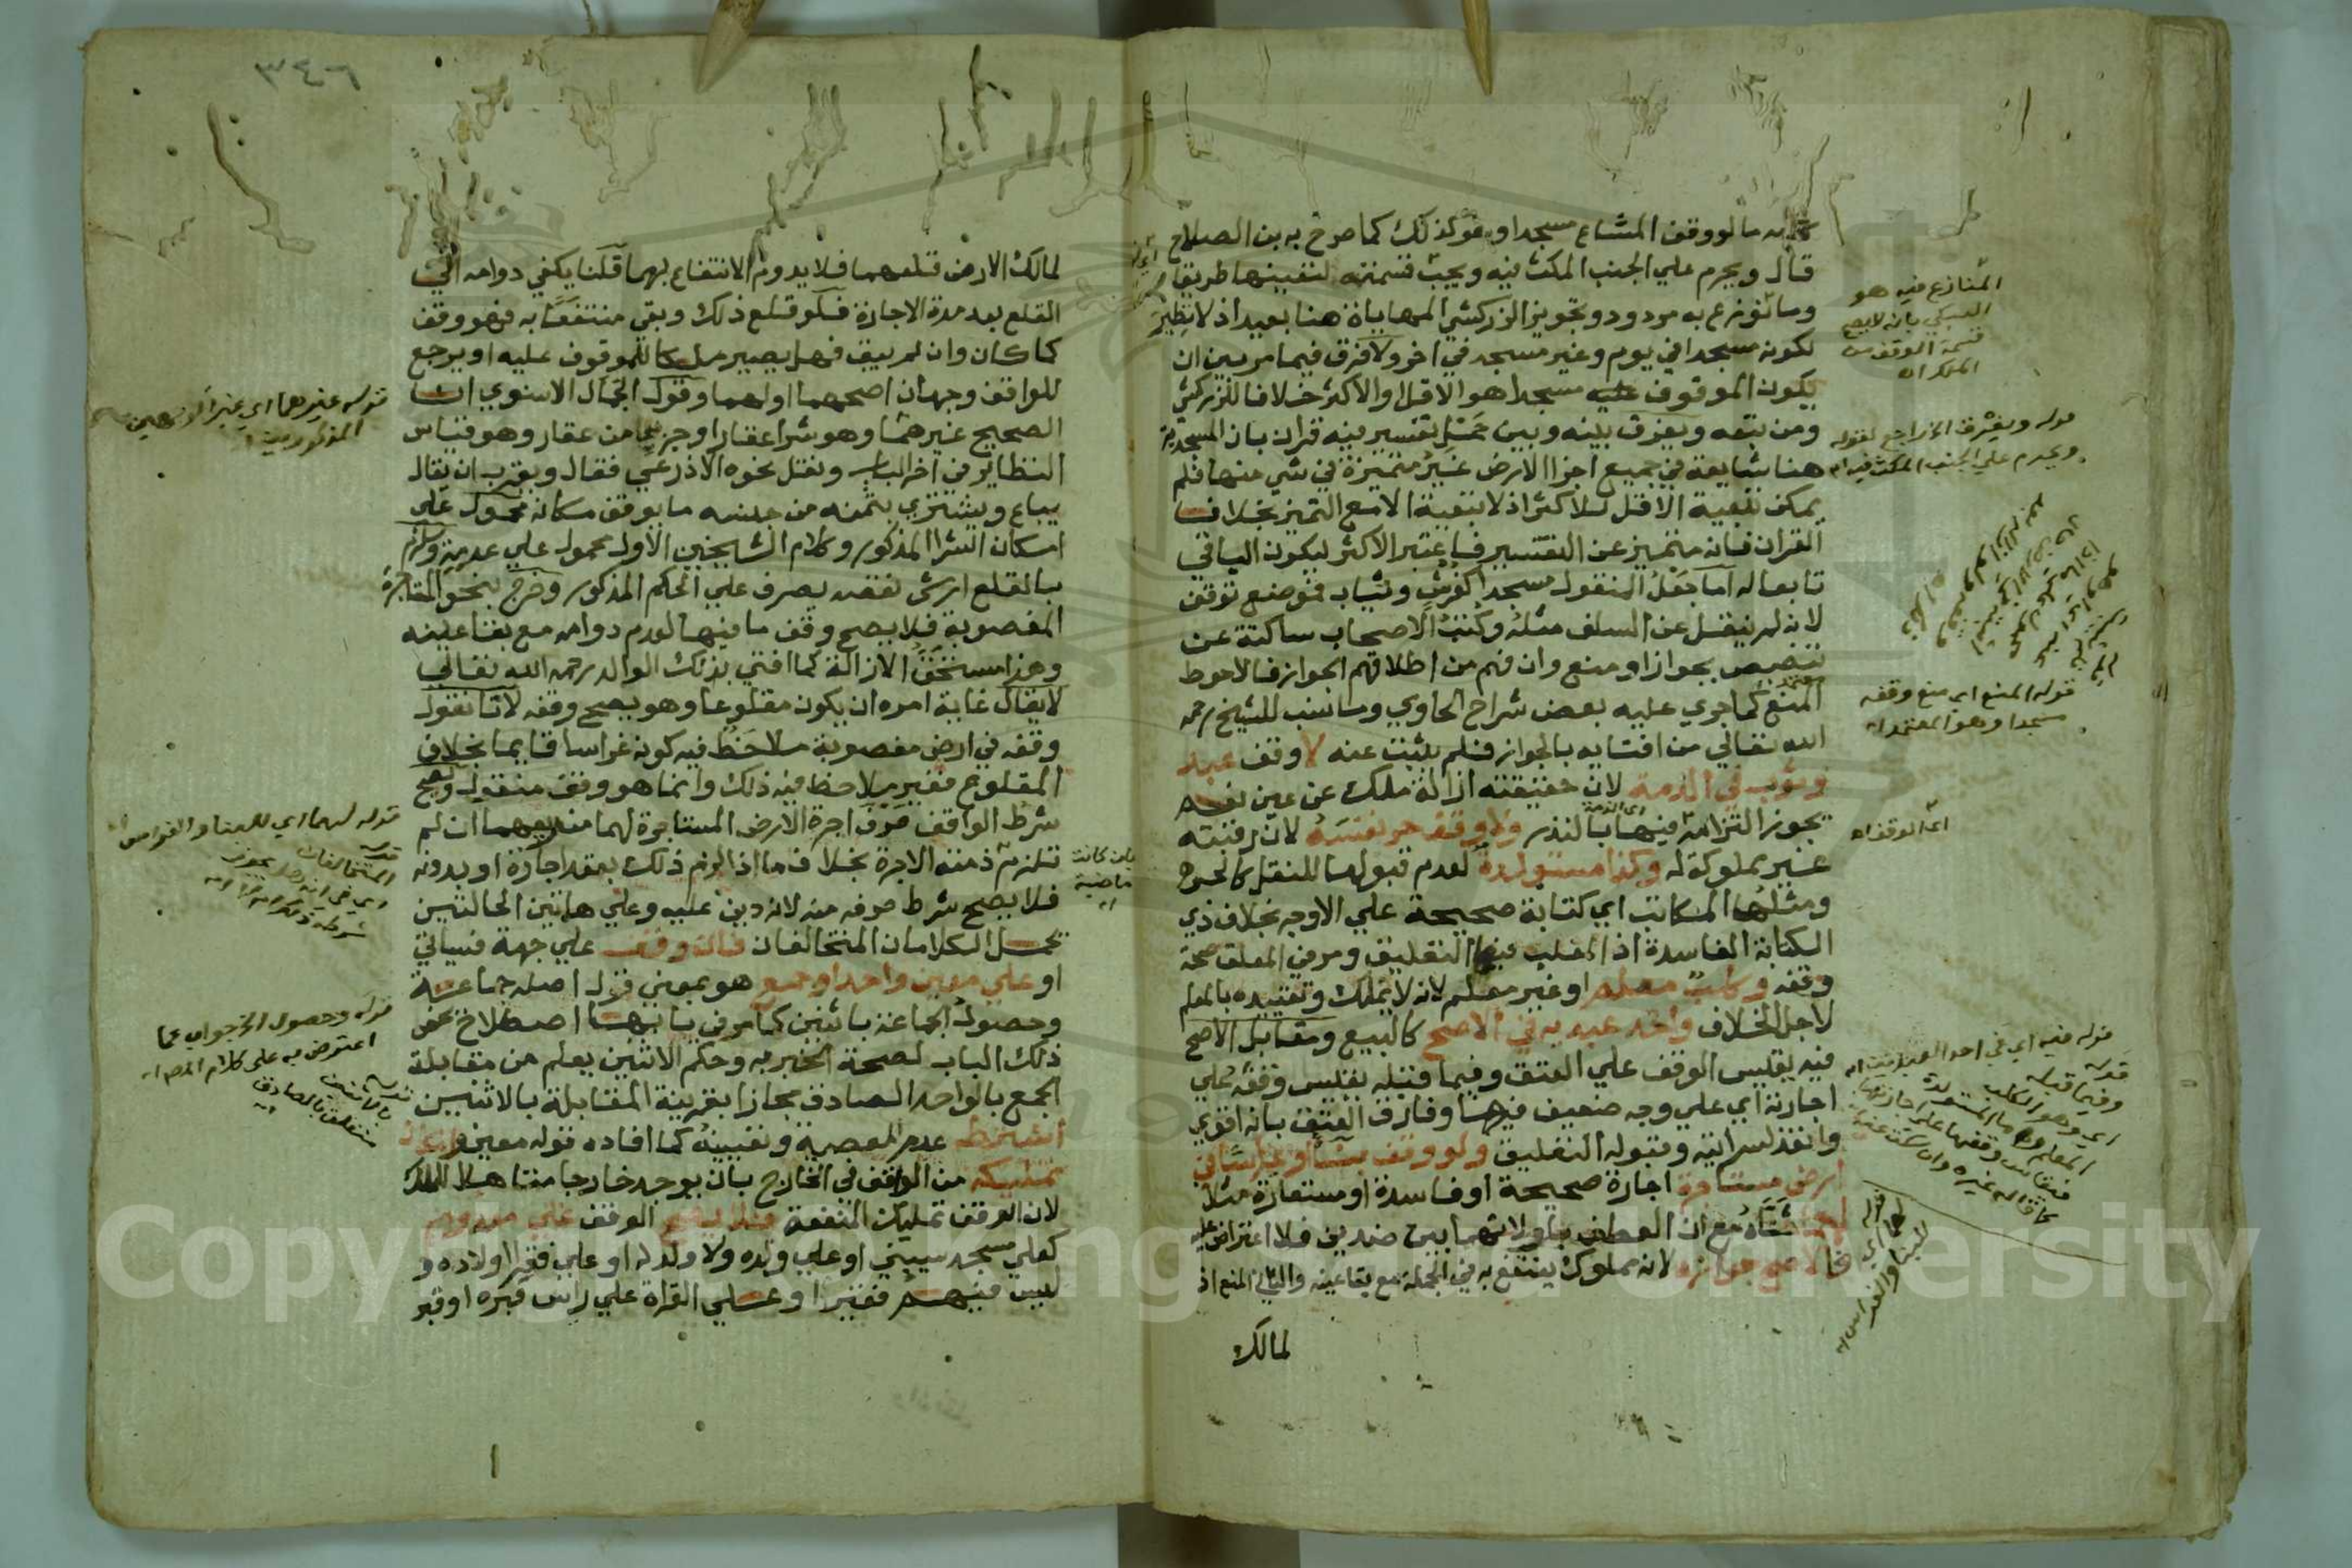 كلامه ما لو وقف المشاع مسجدا وهو كذلك كما صرح به بن الصلاح
قال ويحرم علي الجنب المكث فيه ويجب قسمته لتعينها طريقا
وما نوزع به مردود وتجويز الزركشي المهاياة هنا بعيد اذ لا نظير
لكونه مسجدا في يوم وغير مسجد في اخر ولا فرق فيما مر بين ان
يكون الموقوف عليه مسجدا هو الاقل او الاكثر خلافا للزركشي
ومن تبعه ويفرق بينه وبين حمل تفسير فيه قران بان المسجدية
هنا شايعة في جميع اجزا الارض غير متميزة في شي منها فلم
يمكن تبعية الاقل للاكثر اذ لا تبعية الا مع التميز بخلاف
القران فانه متميز عن التفسير فاعتبر الاكثر ليكون الباقي
تابعا له اما جعل المنقول مسجدا كفرش وثياب فموضع توقف
لانه لم ينقل عن السلف مثله وكتب الاصحاب ساكتة عن
تنصيص بجواز او منع وان فهم من اطلاقهم الجواز فالاحوط
المنع كما جري عليه بعض شراح الحاوي وما نسب للشيخ رحمه
الله تعالي من افتايه بالجواز فلم يثبت عنه لا وقف عبد
وثوب في الذمة لان حقيقته ازالة ملك عن عين نعم
يجوز التزامه فيها بالنذر ولا وقف حر نفسه لان رقبته
غير مملوكة له وكذا مستولدة لعدم قبولها للنقل كالحر
ومثلها المكاتب اي كتابة صحيحة علي الاوجه بخلاف ذي
الكتابة الفاسدة اذ المغلب فيها التعليق ومر في المعلق صحة
وقفه وكلب معلم او غير معلم لانه لا يملك وتقييده بالمعلم
لاجل الخلاف واحد عبديه في الاصح كالبيع ومقابل الاصح
فيه يقيس الوقف علي العتق وفيما قبله يقيس وقفه علي
اجارته اي علي وجه ضعيف فيها وفارق العتق بانه اقوي
وانفذ لسرايته وقبوله التعليق ولو وقف بنا او غراسا في
ارض مستاجرة اجارة صحيحة او فاسدة او مستعارة مثلا
لهما مع ان العطف باو لانهما بين ضدين فلا اعتراض عليه
فالاصح جوازه لانه مملوك ينتفع به في الجملة مع بقا عينه والثاني المنع اذ
لمالك
المنازع فيه هو
السبكي بانه لا يصح
قسمة الوقف من
الملك اه
قوله ويفرق الخ راجع لقوله
ويحرم علي الجنب المكث فيه اه
قوله المنع اي منع وقفه
مسجدا وهو المعتمد اه
اي الذمة
اي الوقف اه
قوله فيه اي في احد العبدين اه
قوله
وفيما قبله
اي وهو الكلب
المعلم
٣٤٦
لمالك الارض قلعهما فلا يدوم الانتفاع بهما قلنا يكفي دوامه الي
القلع بعد مدة الاجارة فلو قلع ذلك وبقي منتفعا به فهو وقف
كما كان وان لم يبق فهل يصير ملكا للموقوف عليه او يرجع
للواقف وجهان اصحهما اولهما وقول الجمال الاسنوي ان
الصحيح غيرهما وهو شرا عقار او جزء من عقار وهو قياس
النظاير في اخر الباب ونقل نحوه الاذرعي فقال ويقرب ان يقال
يباع ويشتري بثمنه من جنسه ما يوقف مكانه محمول علي
امكان الشرا المذكور وكلام الشيخين الاول محمول علي عدمه ويلزم
بالقلع ارش نقصه يصرف علي الحكم المذكور وخرج بنحو المستاجرة
المغصوبة فلا يصح وقف ما فيها لعدم دوامه مع بقا عينه
وهذا مستحق الازالة كما افتي بذلك الوالد رحمه الله تعالي
لا يقال غاية امره ان يكون مقلوعا وهو يصح وقفه لانا نقول
وقفه في ارض مغصوبة ملاحظ فيه كونه غراسا قايما بخلاف
المقلوع فغير ملاحظ فيه ذلك وانما هو وقف منقول ويصح
شرط الواقف صرف اجرة الارض المستاجرة لهما من ريعهما ان لم
تلزم ذمته الاجرة بخلاف ما اذا لزم ذلك بعقد اجارة او بدونه
فلا يصح شرط صرفه منه لانه دين عليه وعلي هاتين الحالتين
يحمل الكلامان المتخالفان فان وقف علي جهة فسياتي
او علي معين واحد او جمع هو بمعني قول اصله جماعة
وحصول الجماعة باثنين كما مر في بابها اصطلاح يخص
ذلك الباب لصحة الخبر به وحكم الاثنين يعلم من مقابلة
الجمع بالواحد الصادق مجازا بقرينة المقابلة بالاثنين
اشترط عدم المعصية وتعيينه كما افاده قوله معين وامكان
تمليكه من الواقف في الخارج بان يوجد خارجا متاهلا للملك
لان الوقف تمليك المنفعة فلا يصح الوقف علي معدوم
كعلي مسجد سيبني او علي ولده ولا ولد له او علي فقرا اولاده و
ليس فيهم فقيرا وعلي القراة علي راس قبره او قبر
قوله غيرهما اي غير الوجهين
المذكورين
قوله لهما اي للبنا والغراس
قوله
المتخالفان
بان كانت
ماضية
اه
قوله وحصول الخ جواب عما
اعترض به علي كلام المص اه
قوله
بالاثنين
متعلق بالصادق
اه
Copyright © King Saud University